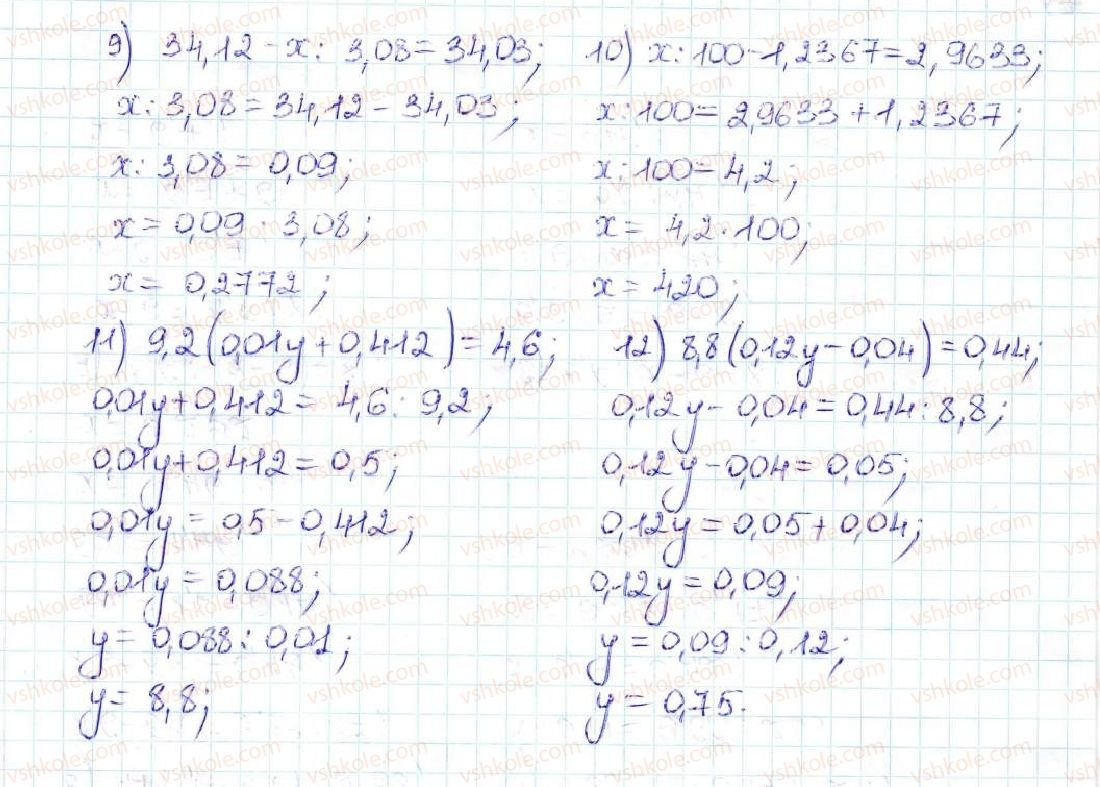 9) 34,12 - x : 3,08 = 34,03;
x : 3,08 = 34,12 - 34,03;
x : 3,08 = 0,09;
x = 0,09 · 3,08;
x = 0,2772;
10) x : 100 - 1,2367 = 2,9633;
x : 100 = 2,9633 + 1,2367;
x : 100 = 4,2;
x = 4,2 · 100;
x = 420;
11) 9,2(0,01y + 0,412) = 4,6;
0,01y + 0,412 = 4,6 : 9,2;
0,01y + 0,412 = 0,5;
0,01y = 0,5 - 0,412;
0,01y = 0,088;
y = 0,088 : 0,01;
y = 8,8;
12) 8,8(0,12y - 0,04) = 0,44;
0,12y - 0,04 = 0,44 : 8,8;
0,12y - 0,04 = 0,05;
0,12y = 0,05 + 0,04;
0,12y = 0,09;
y = 0,09 : 0,12;
y = 0,75.
vshkole.com